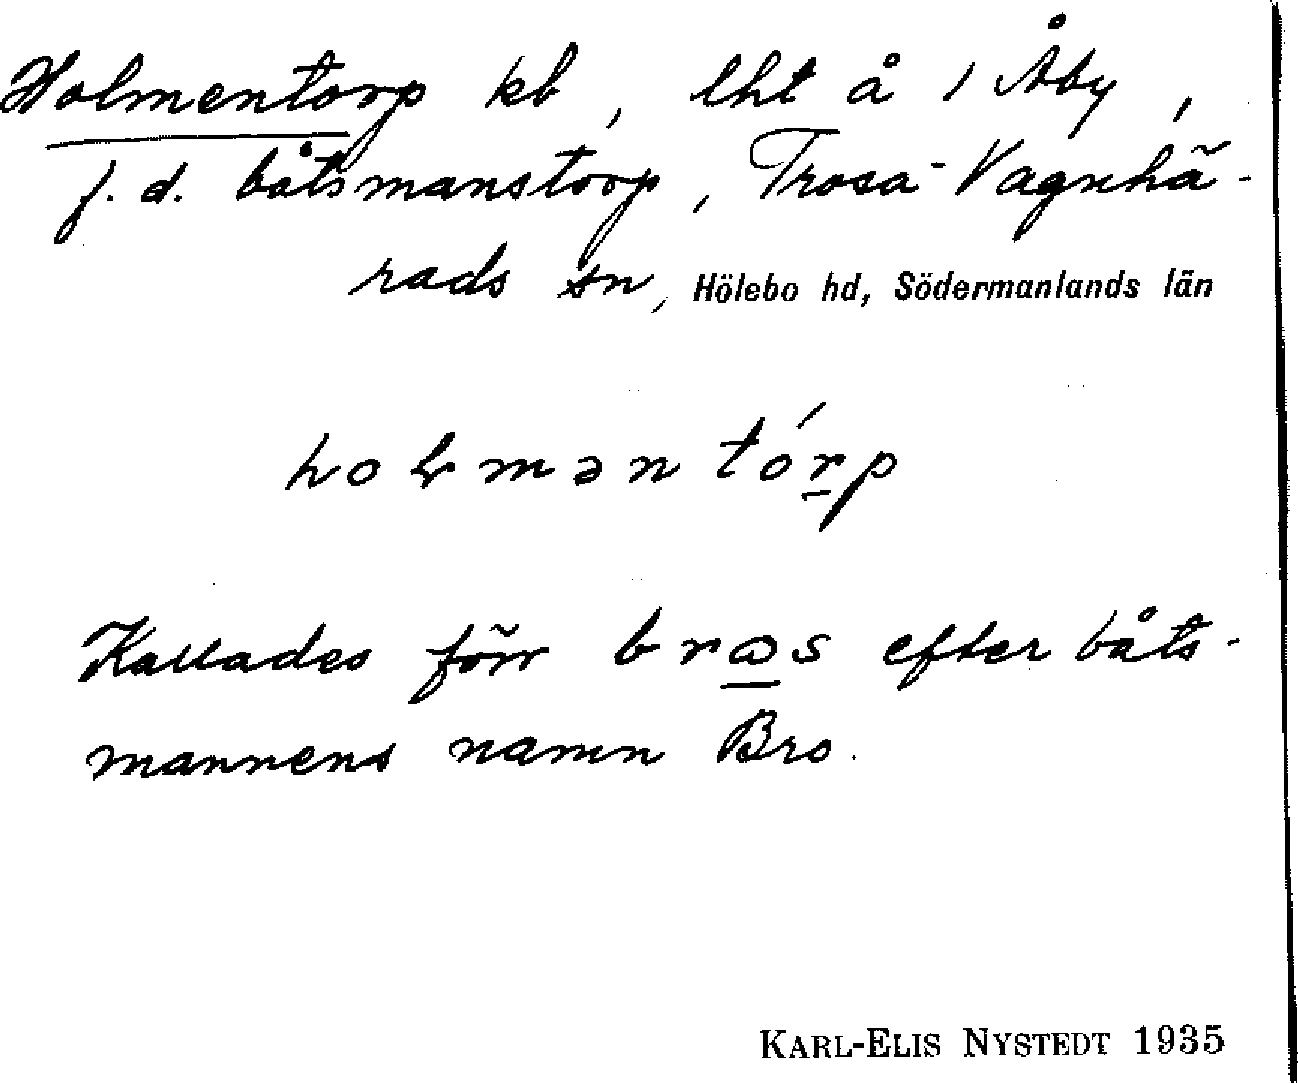 Holmentorp kb, lht å 1 Åby,
f.d. båtsmanstorp, Trosa-Vagnhä-
rads sn, Hölebo hd, Södermanlands län
holmən tórp
Kallades förr bras efter båts-
mannens namn Bro.
KARL-ELIS NYSTEDT 1935